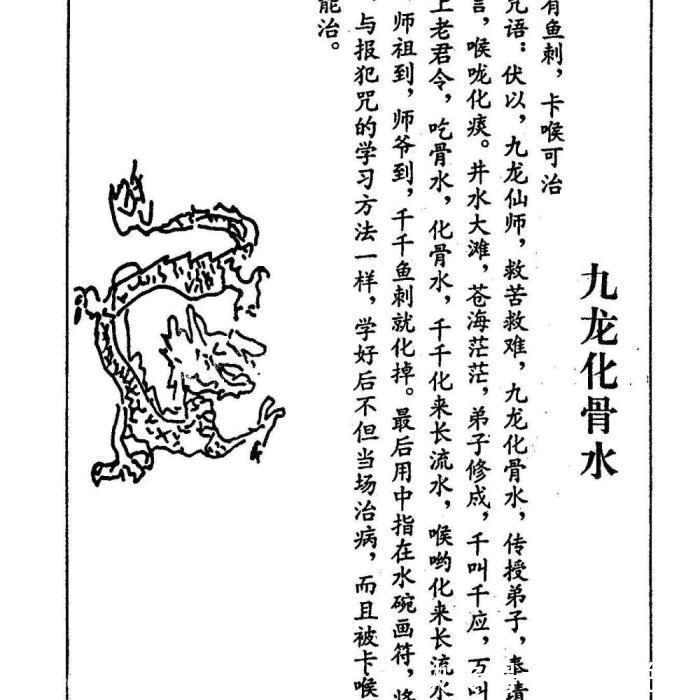 九龙化骨水
有鱼刺，卡喉可治
咒语：伏以，九龙仙师，救苦救难，九龙化骨水，传授弟子，奉请
言，喉咙化痰。井水大滩，苍海茫茫，弟子修成，千叫千应，万叫
上老君令，吃骨水，化骨水，千千化来长流水，喉哟化来长流水
师祖到，师爷到，千千鱼刺就化掉。最后用中指在水碗画符，将
与报犯咒的学习方法一样，学好后不但当场治病，而且被卡喉
能治。